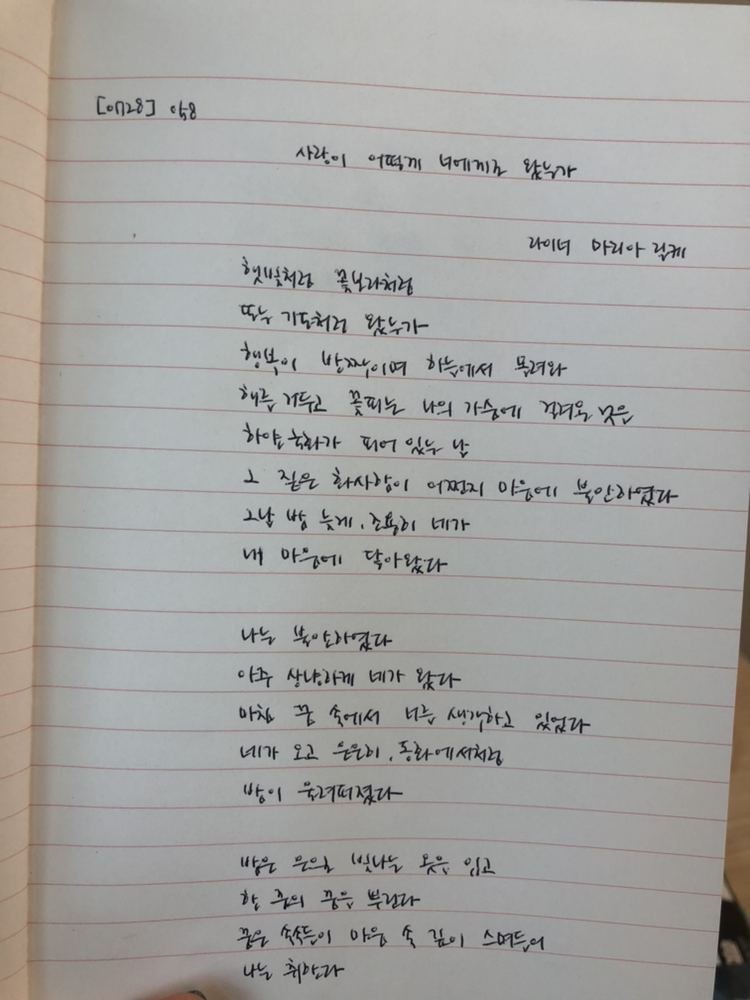 [0728] 058
사랑이 어떻게 너에게로 왔는가
라이너 마리아 릴케
햇빛처럼 꽃보라처럼
또는 기도처럼 왔는가
행복이 반짝이며 하늘에서 몰려와
날개를 거두고 꽃피는 나의 가슴에 걸려온 것을
하얀 국화가 피어 있는 날
그 짙은 화사함이 어쩐지 마음에 불안하였다
그날 밤 늦게, 조용히 네가
내 마음에 닿아왔다
나는 불안하였다
아주 상냥하게 네가 왔다
마침 꿈 속에서 너를 생각하고 있었다
네가 오고 은은히, 동화에서처럼
밤이 울려퍼졌다
밤은 은으로 빛나는 옷을 입고
한 줌의 꿈을 뿌린다
꿈은 속속들이 마음 속 깊이 스며들어
나는 취한다